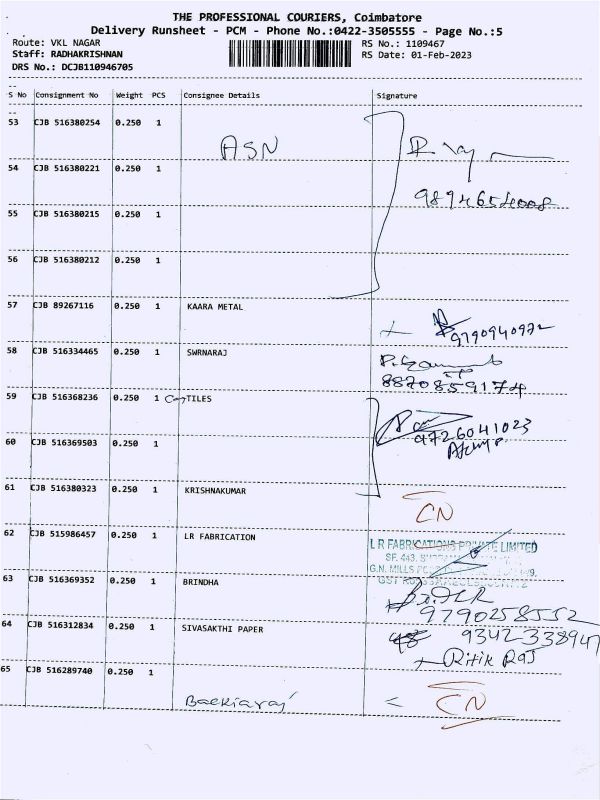 THE PROFESSIONAL COURIERS, Coimbatore
Delivery Runsheet - PCM - Phone No.:0422-3505555 - Page No.:5
Route: VKL NAGAR RS No.: 1109467
Staff: RADHAKRISHNAN RS Date: 01-Feb-2023
DRS No.: DCJB110946705
S No Consignment No Weight PCS Consignee Details Signature
53 CJB 516380254 0.250 1
ASN
54 CJB 516380221 0.250 1
55 CJB 516380215 0.250 1
56 CJB 516380212 0.250 1
57 CJB 89267116 0.250 1 KAARA METAL
9790940972
58 CJB 516334465 0.250 1 SWRNARAJ
8870859174
59 CJB 516368236 0.250 1 TILES
9726041023
60 CJB 516369503 0.250 1
61 CJB 516380323 0.250 1 KRISHNAKUMAR
CN
62 CJB 515986457 0.250 1 LR FABRICATION
L R FABRICATIONS PRIVATE LIMITED
SF. 443,
G.N. MILLS
63 CJB 516369352 0.250 1 BRINDHA
9790258552
64 CJB 516312834 0.250 1 SIVASAKTHI PAPER
9342338947
Ritik Raj
65 CJB 516289740 0.250 1
Backiaraj CN